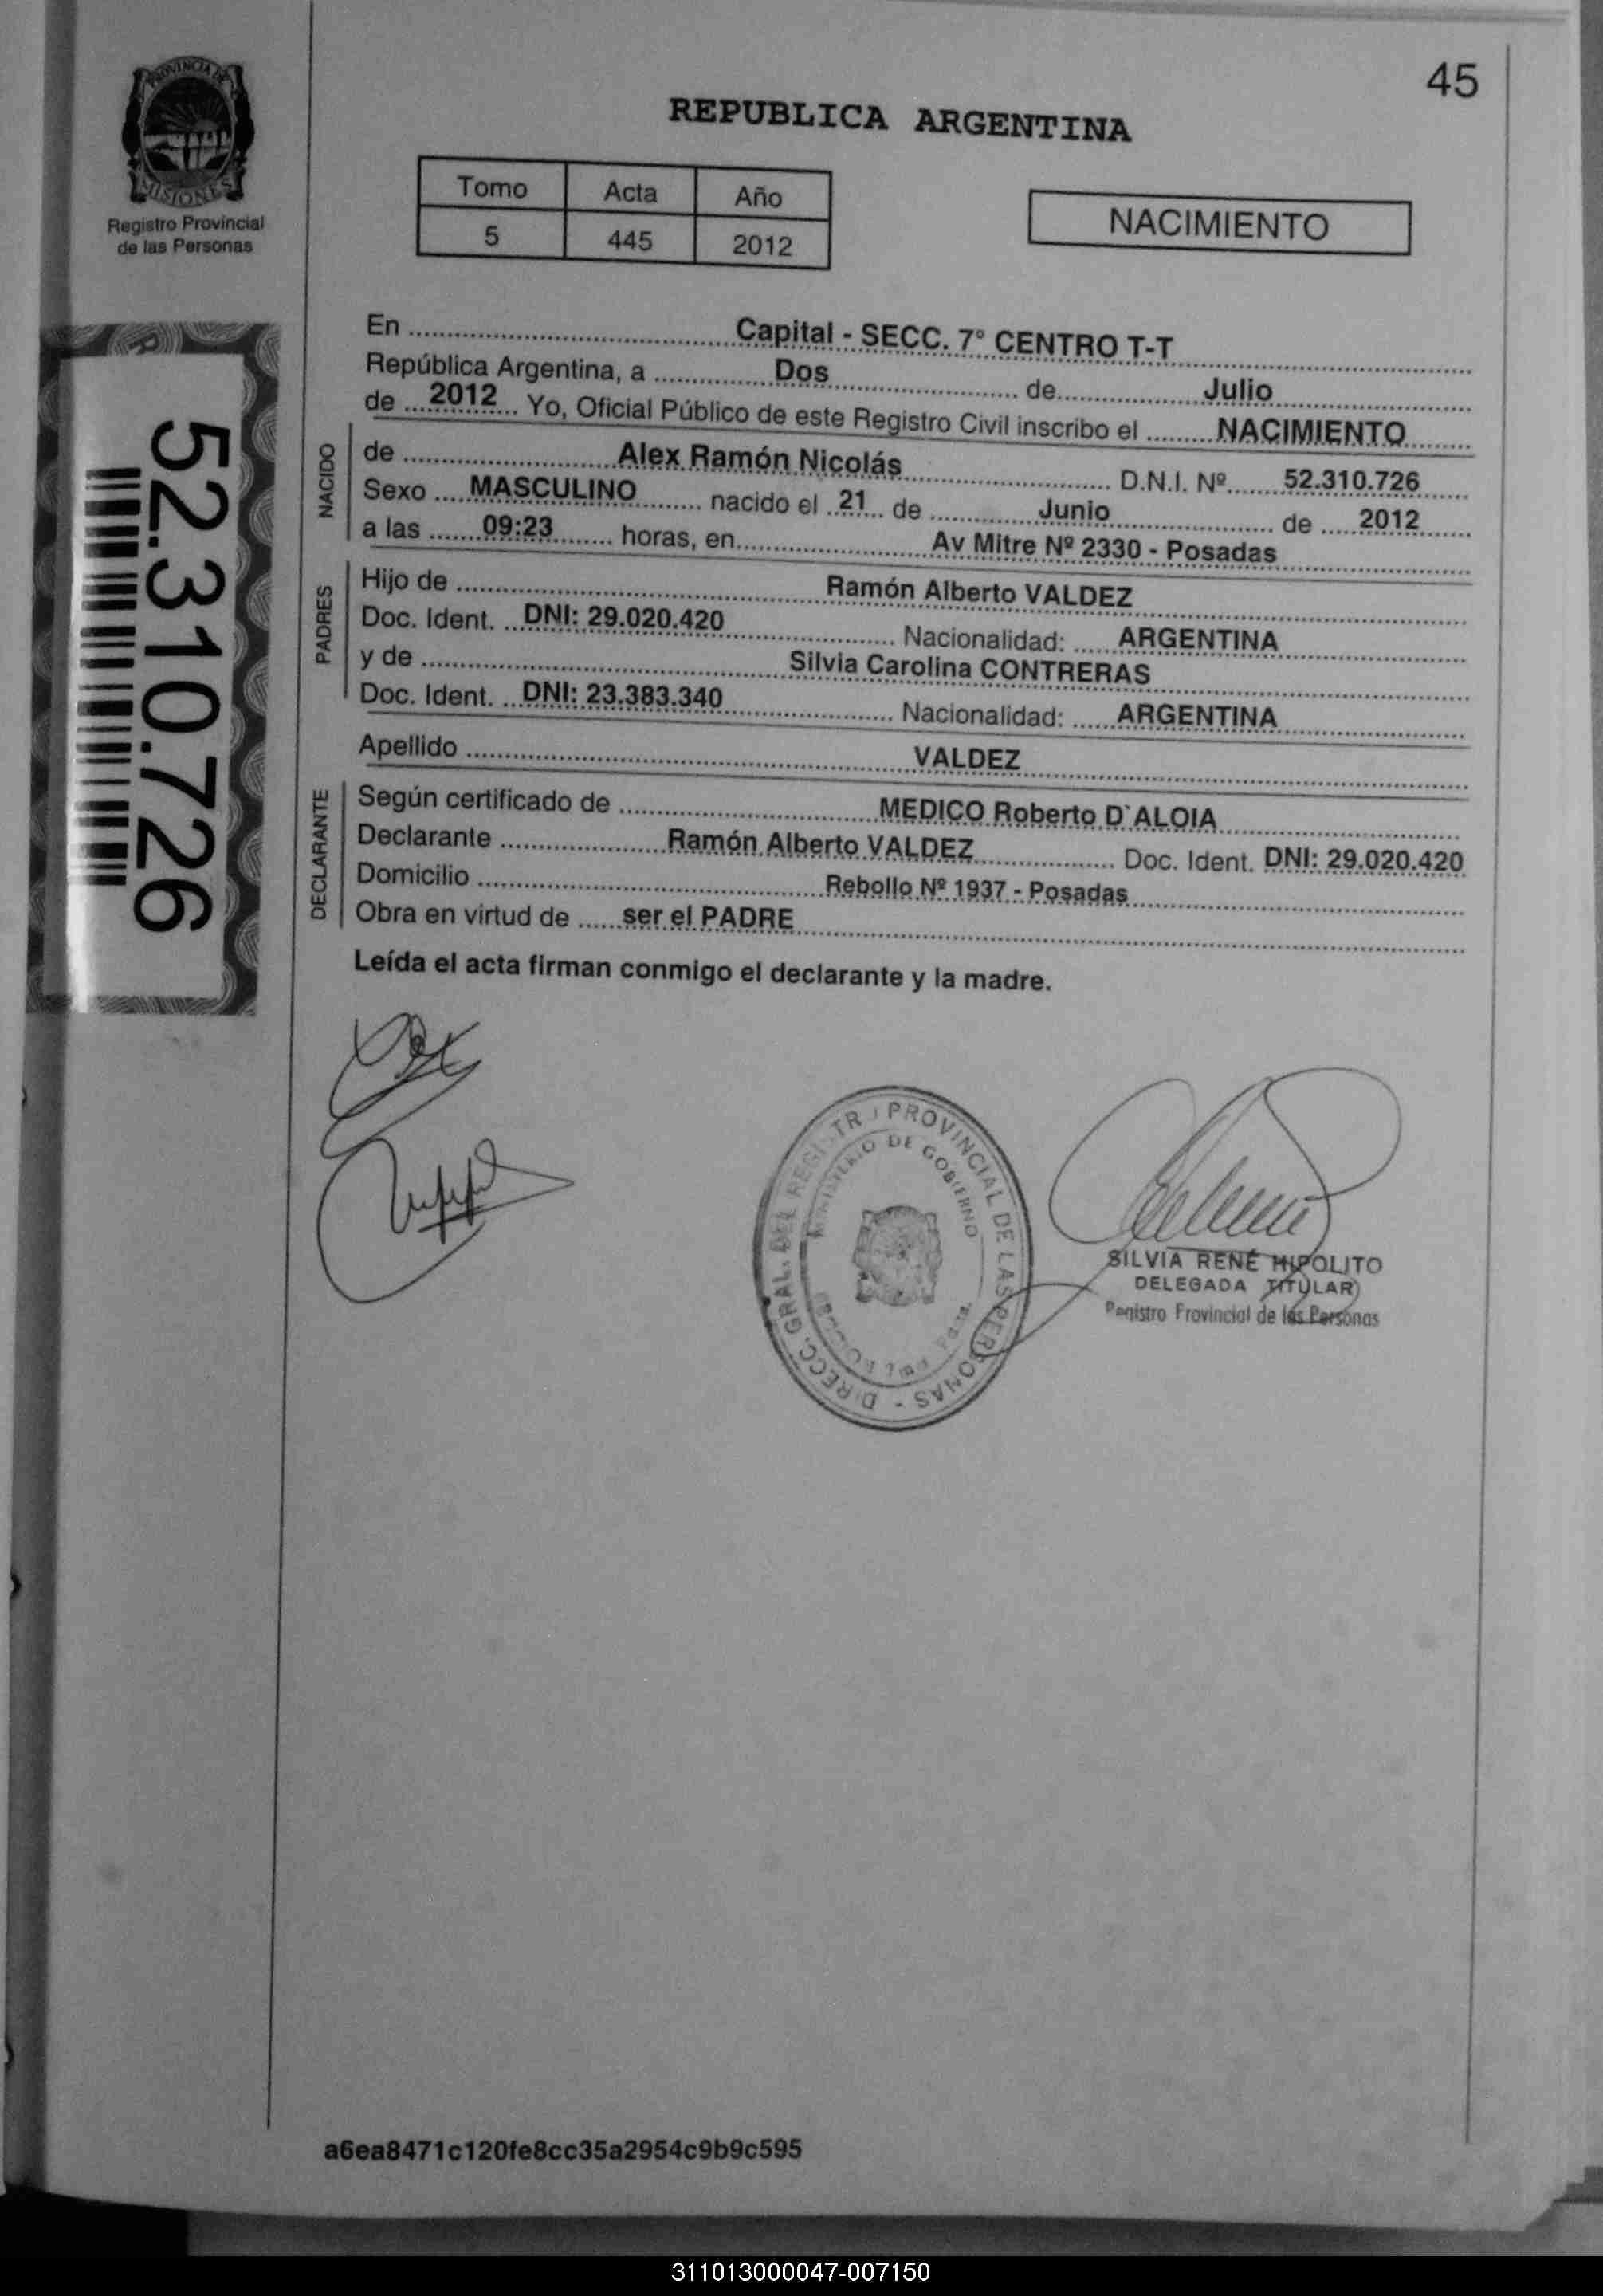 45
PROVINCIA DE
MISIONES
Registro Provincial
de las Personas
REPUBLICA ARGENTINA
Tomo Acta Año
5 445 2012
NACIMIENTO
52.310.726
En Capital - SECC. 7° CENTRO T-T
República Argentina, a Dos de Julio
de 2012 Yo, Oficial Público de este Registro Civil inscribo el NACIMIENTO
NACIDO
de Alex Ramón Nicolás D.N.I. Nº 52.310.726
Sexo MASCULINO nacido el 21 de Junio de 2012
a las 09:23 horas, en Av Mitre Nº 2330 - Posadas
PADRES
Hijo de Ramón Alberto VALDEZ
Doc. Ident. DNI: 29.020.420 Nacionalidad: ARGENTINA
y de Silvia Carolina CONTRERAS
Doc. Ident. DNI: 23.383.340 Nacionalidad: ARGENTINA
Apellido VALDEZ
DECLARANTE
Según certificado de MEDICO Roberto D`ALOIA
Declarante Ramón Alberto VALDEZ Doc. Ident. DNI: 29.020.420
Domicilio Rebollo Nº 1937 - Posadas
Obra en virtud de ser el PADRE
Leída el acta firman conmigo el declarante y la madre.
DIRECC. GRAL. DEL REGISTR PROVINCIAL DE LAS PERSONAS -
MINISTERIO DE GOBIERNO
SILVIA RENÉ HIPOLITO
DELEGADA TITULAR
Registro Provincial de las Personas
a6ea8471c120fe8cc35a2954c9b9c595
311013000047-007150